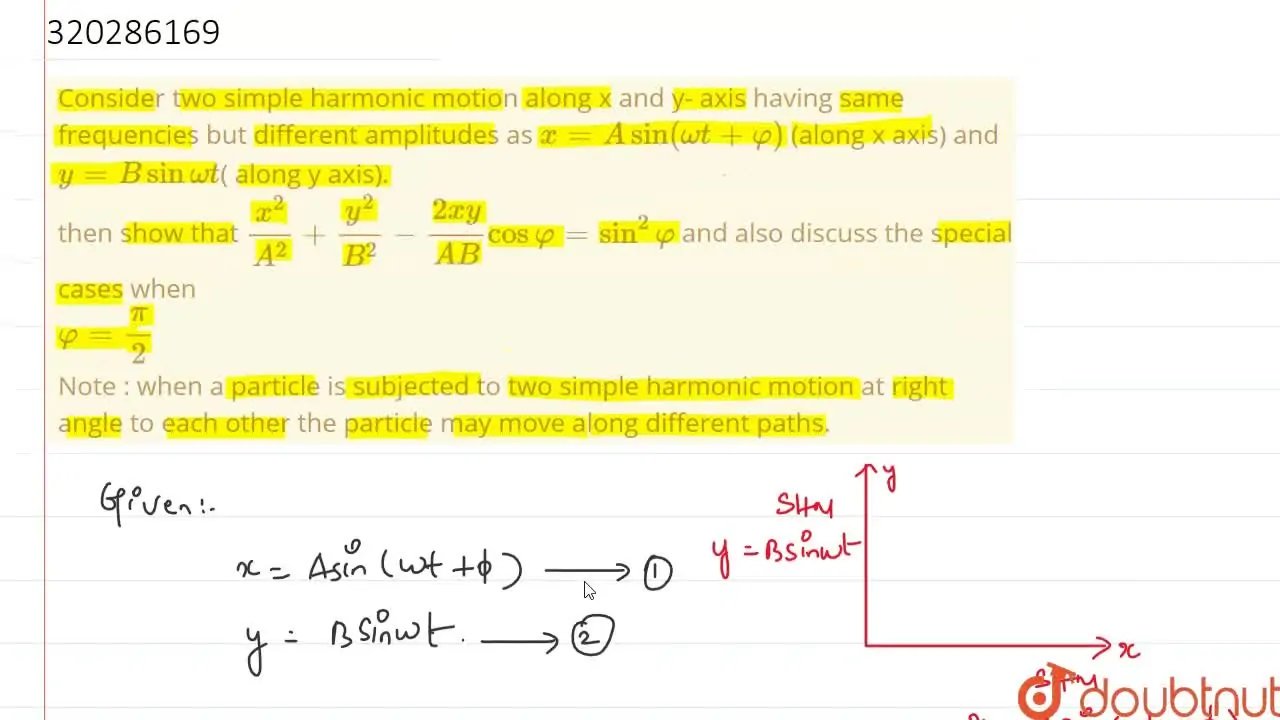 320286169
Consider two simple harmonic motion along x and y- axis having same
frequencies but different amplitudes as x = A sin(ωt + φ) (along x axis) and
y = B sin ωt( along y axis).
then show that x²/A² + y²/B² − 2xy/AB cos φ = sin² φ and also discuss the special
cases when
φ = π/2
Note : when a particle is subjected to two simple harmonic motion at right
angle to each other the particle may move along different paths.
Given:.
x = A sin (ωt + ϕ) ⟶ ①
y = B sin ωt. ⟶ ②
y
SHM
y = B sin ωt
x
SHM
doubtnut